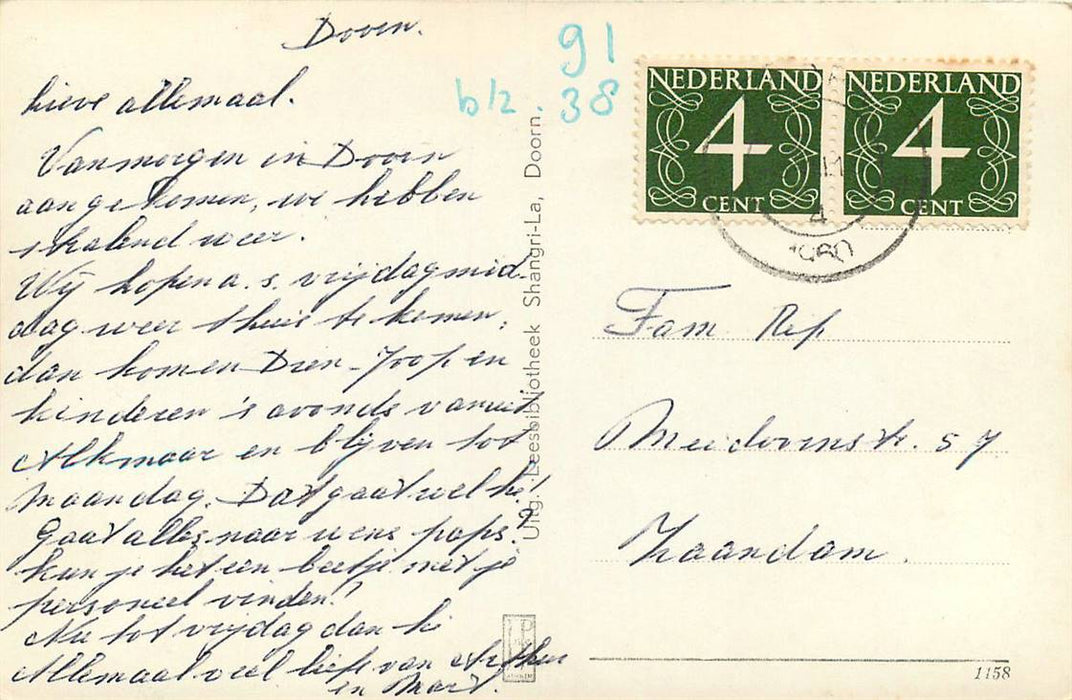 Doorn.
Lieve allemaal.
Vanmorgen in Doorn
aangekomen, we hebben
stralend weer.
Wij hopen a.s. vrijdagmid-
dag weer thuis te komen,
dan komen Dien - Joop en
kinderen 's avonds vanuit
Alkmaar en blijven tot
Maandag. Dat gaat wel hè!
Gaat alles naar wens paps?
kun je het een beetje met je
personeel vinden?
Nu tot vrijdag dan hè
Allemaal veel liefs van
en
91
blz. 38
Uitg. Leesbibliotheek Shangri-La, Doorn.
NEDERLAND
4
CENT
NEDERLAND
4
CENT
4
1960
Fam Rep
Meidoornstr. 57
Zaandam.
1158